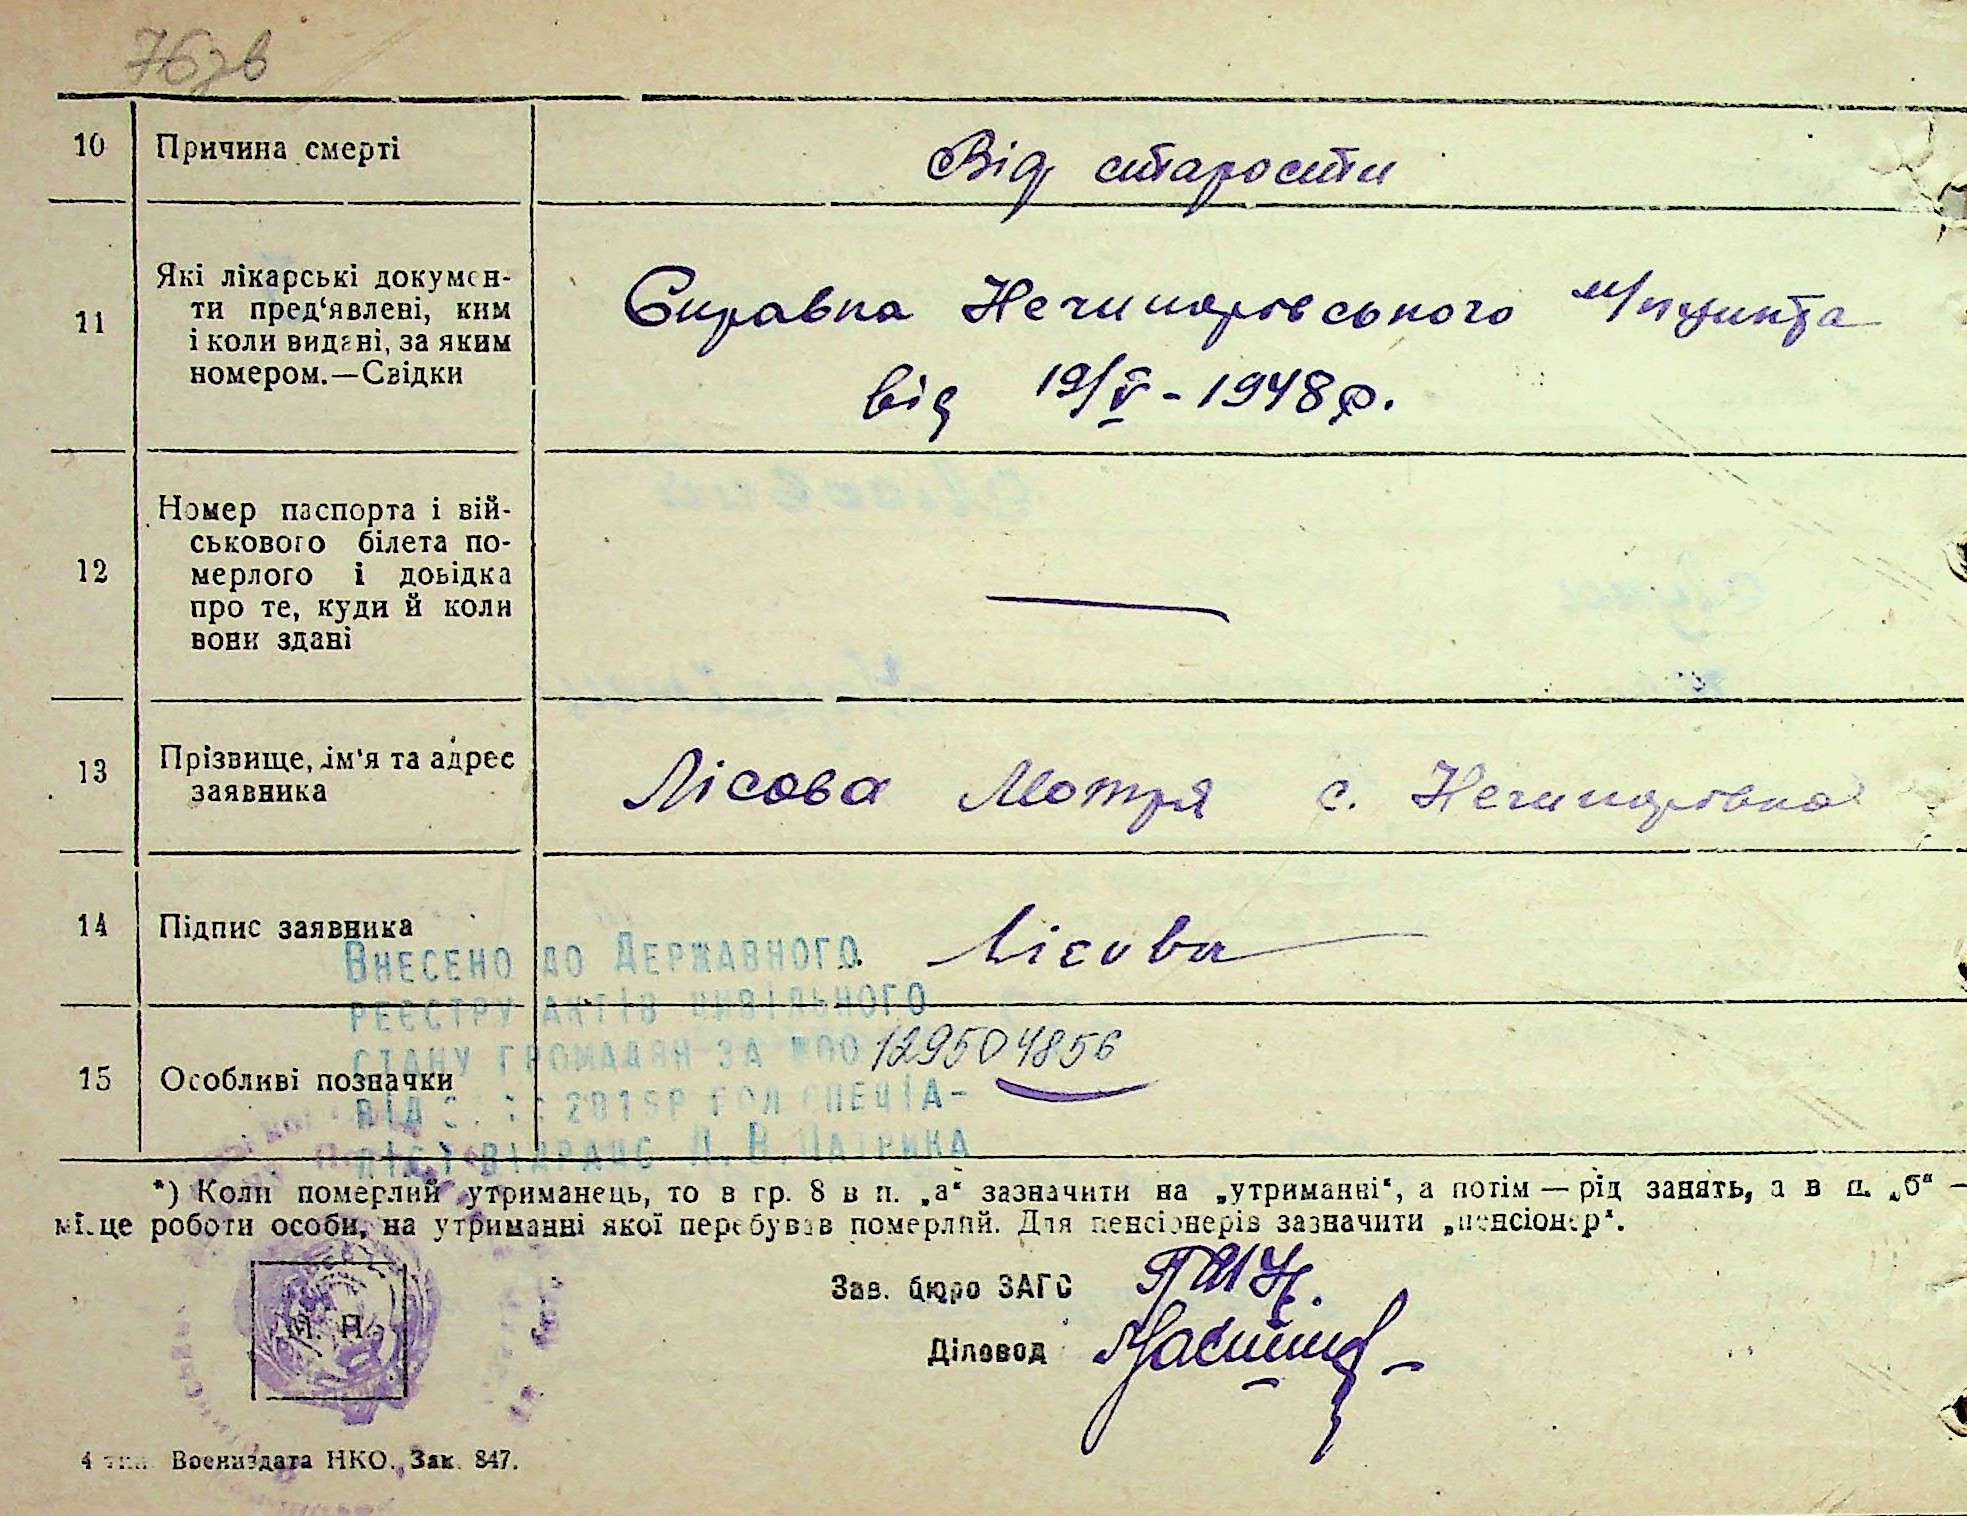 76зв
10 Причина смерті Від старости
11 Які лікарські докумен-
ти пред'явлені, ким
і коли видані, за яким
номером.—Свідки
Справка Нечипорівського м/пункта
від 19/V - 1948 р.
12 Номер паспорта і вій-
ськового білета по-
мерлого і довідка
про те, куди й коли
вони здані
—
13 Прізвище, ім'я та адрес
заявника
Лісова Мотря с. Нечипорівка
14 Підпис заявника Лісова
Внесено до Державного
реєстру актів цивільного
стану громадян за №00 129504856
15 Особливі позначки
від 2015р гол спеціа-
ліст відрацс
*) Коли померлий утриманець, то в гр. 8 в п. „а“ зазначити на „утриманні“, а потім — рід занять, а в п. „б“ —
місце роботи особи, на утриманні якої перебував померлий. Для пенсіонерів зазначити „пенсіонер“.
Зав. бюро ЗАГС
Діловод
М. П.
4 тип. Воениздата НКО. Зак. 847.